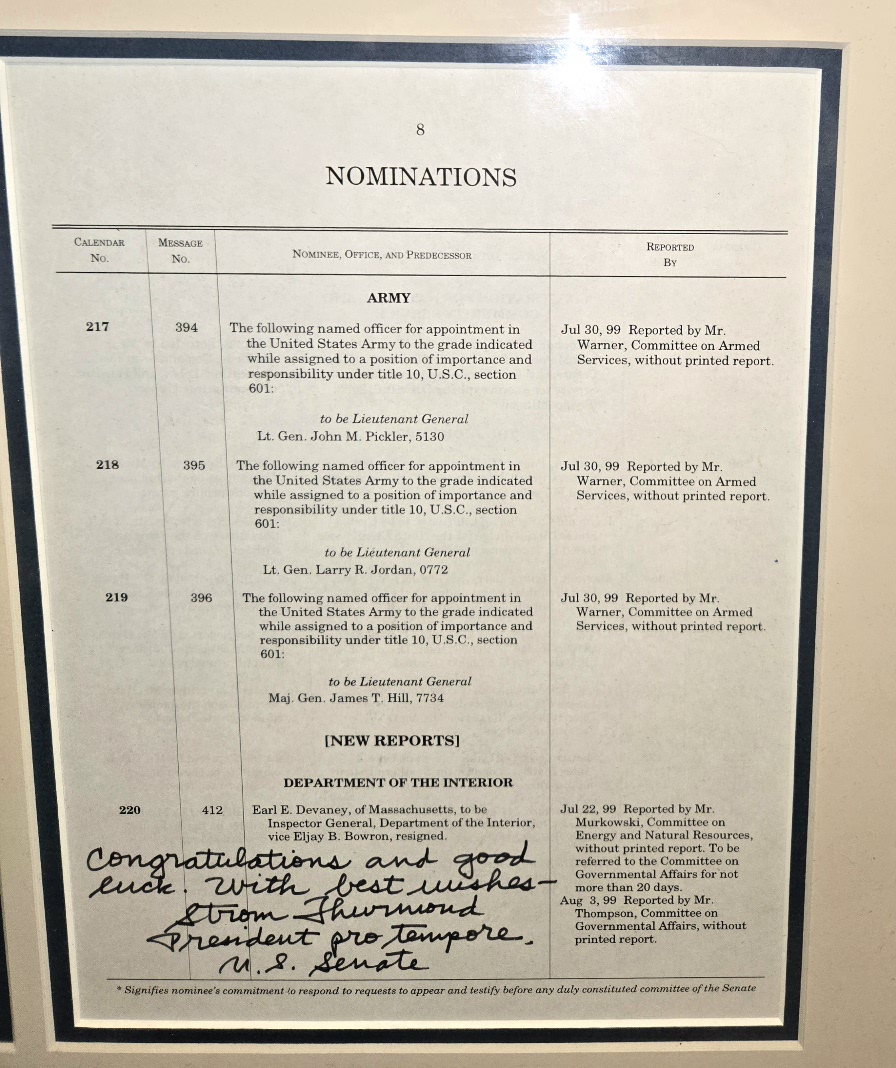 8
NOMINATIONS
CALENDAR No.
MESSAGE No.
NOMINEE, OFFICE, AND PREDECESSOR
REPORTED BY
ARMY
217
394
The following named officer for appointment in
the United States Army to the grade indicated
while assigned to a position of importance and
responsibility under title 10, U.S.C., section
601:
to be Lieutenant General
Lt. Gen. John M. Pickler, 5130
Jul 30, 99 Reported by Mr.
Warner, Committee on Armed
Services, without printed report.
218
395
The following named officer for appointment in
the United States Army to the grade indicated
while assigned to a position of importance and
responsibility under title 10, U.S.C., section
601:
to be Lieutenant General
Lt. Gen. Larry R. Jordan, 0772
Jul 30, 99 Reported by Mr.
Warner, Committee on Armed
Services, without printed report.
219
396
The following named officer for appointment in
the United States Army to the grade indicated
while assigned to a position of importance and
responsibility under title 10, U.S.C., section
601:
to be Lieutenant General
Maj. Gen. James T. Hill, 7734
Jul 30, 99 Reported by Mr.
Warner, Committee on Armed
Services, without printed report.
[NEW REPORTS]
DEPARTMENT OF THE INTERIOR
220
412
Earl E. Devaney, of Massachusetts, to be
Inspector General, Department of the Interior,
vice Eljay B. Bowron, resigned.
Jul 22, 99 Reported by Mr.
Murkowski, Committee on
Energy and Natural Resources,
without printed report. To be
referred to the Committee on
Governmental Affairs for not
more than 20 days.
Aug 3, 99 Reported by Mr.
Thompson, Committee on
Governmental Affairs, without
printed report.
Congratulations and good
luck. With best wishes-
Strom Thurmond
President pro tempore.
U.S. Senate
* Signifies nominee's commitment to respond to requests to appear and testify before any duly constituted committee of the Senate